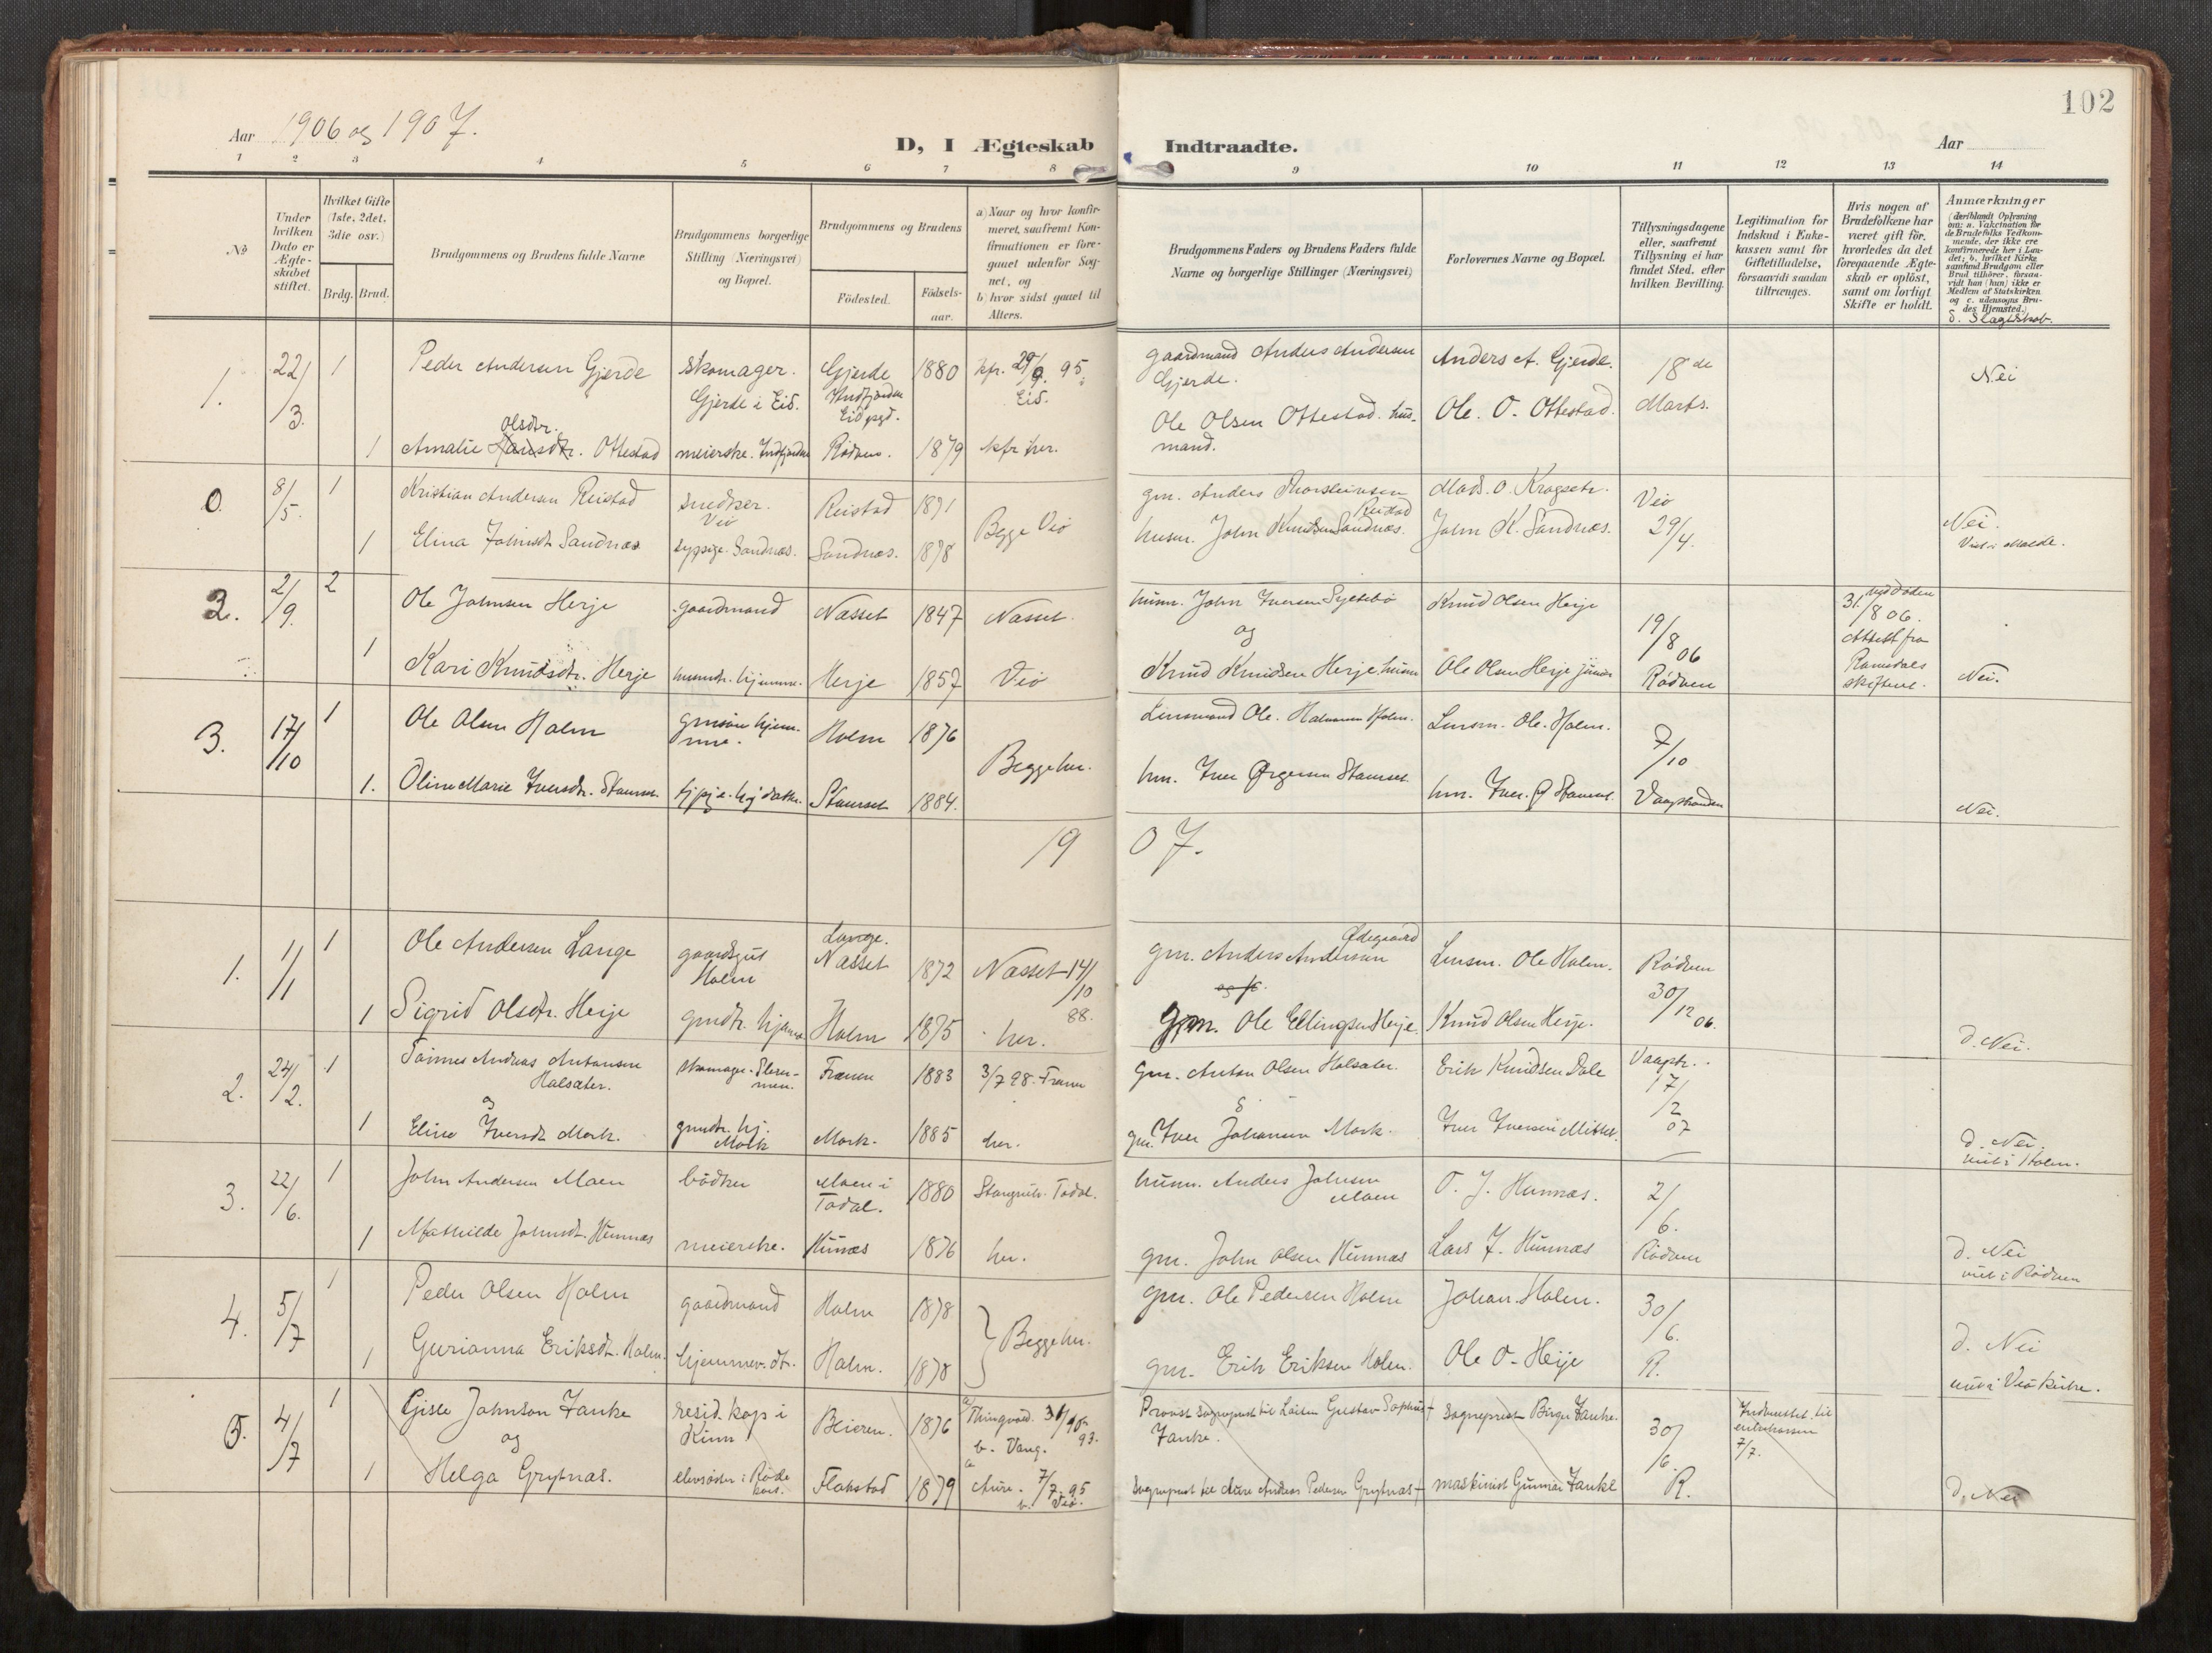 102
Aar 1906 og 1907.
D, I Ægteskab Indtraadte.
Aar
1 2 3 4 5 6 7 8 9 10 11 12 13 14
No
Under hvilken Dato er Ægteskabet stiftet.
Hvilket Gifte (1ste, 2det, 3die osv.)
Brdg. Brud.
Brudgommens og Brudens fulde Navne
Brudgommens borgerlige Stilling (Næringsvei) og Bopæl.
Brudgommens og Brudens
Födested.
Födselsaar.
a) Naar og hvor konfirmeret, saafremt Konfirmationen er foregaaet udenfor Sognet, og
b) hvor sidst gaaet til Alters.
Brudgommens Faders og Brudens Faders fulde Navne og borgerlige Stillinger (Næringsvei)
Forlovernes Navne og Bopæl.
Tillysningsdagene eller, saafremt Tillysning ei har fundet Sted, efter hvilken Bevilling.
Legitimation for Indskud i Enkekassen samt for Giftetilladelse, forsaavidt saadan tiltrænges.
Hvis nogen af Brudefolkene har været gift för, hvorledes da det foregaaende Ægteskab er oplöst, samt om lovligt Skifte er holdt.
Anmærkninger
(deriblandt Oplysning om: a. Vakcination for de Brudefolks Vedkommende, der ikke ere konfirmerede her i Landet; b. hvilket Kirkesamfund Brudgom eller Brud tilhörer, forsaavidt han (hun) ikke er Medlem af Statskirken og c. udensogns Brudes Hjemsted.)
d. Slagtskab.
1. 22/3. 1 Peder Andersen Gjerde skomager. Gjerde i Eid. Gjerde Indfjorden Eid pgd. 1880 kfr. 29/9. 95. Eid. gaardmand Anders Andersen Gjerde. Anders A. Gjerde. 18de Marts. Nei
1 Amalie Olsdtr. Ottestad meierske. Indfjorden Rödven. 1879 kfr her. Ole Olsen Ottestad. husmand. Ole. O. Ottestad.
0. 8/5. 1 Kristian Andersen Reistad Veö Reistad 1871 Begge Veö gm. Anders Thorsteinsen Reistad Mads. O. Kragset. Veö 29/4.
1 Elina Johnsdt. Sandnæs sypige. Sandnæs. Sandnæs. 1878 husm. John Knudsen Sandnæs. John K. Sandnæs. Nei. Viet i Molde.
2. 2/9. 2 Ole Johnsen Herje gaardmand Næsset 1847 Næsset. husm. John Iversen Knud Olsen Herje 19/8 06 Rödven ved döden 31/8 06. Attest fra Romsdals skifteret.
og
1 Kari Knudsdtr. Herje husmdtr. hjemme. Herje 1857 Veö Knud Knudsen Herje. husm Ole Olsen Herje junior Nei.
3. 17/10 1 Ole Olsen Holm gmsön hjemme. Holm 1876 Begge her. Lensmand Ole. Halvorsen Holm. Lensm. Ole. Holm. 7/10 Vaagstranden
1. Oline Marie Iversdtr. Stavset 1884. hm. Iver Örgersen Stavset hm. Iver. Ö Stavset. Nei.
1907.
1. 1/1 1 Ole Andersen Lange gaardsgut Holm Lange. Næsset 1872 Næsset 14/10 88. gm. Anders Andersen Ødegaard Lensm. Ole Holm. Rödven 30/12 06.
1 Sigrid Olsdtr. Herje gmdtr. hjemme Holm 1875 her. gm. Ole Ellingsen Herje. Knud Olsen Herje. d. Nei.
2. 24/2. 1 Andreas Antonsen Halsæter. skomager. Frænen 1883 3/7 98. Frænen gm. Anton Olsen Halsæter. Erik Knudsen Dale Vaagstr. 17/2 07
og
1 Eline Iversdt Mork. gmdtr. hj. Mork Mork. 1885 her. gm. Iver Johansen Mork. Iver Iversen d. Nei. viet i Holm.
3. 22/6. 1 John Andersen Moen bödker Moen i Todal. 1880 Stangvik. Todal. husm. Anders Johnsen Moen O. J. Hunnæs. 2/6. Rödven
1 Mathilde Johnsdt. Hunnæs meierske. Hunæs 1876 her. gm. John Olsen Hunnæs Lars J. Hunnæs d. Nei viet i Rödven
4. 5/7 1 Peder Olsen Holm gaardmand Holm 1878. Begge her. gm. Ole Pedersen Holm Johan. Holm. 30/6. R.
1 Gurianna Eriksdt. Holm. hjemmev. dt. Holm. 1878 gm. Erik Eriksen Holm. Ole O. Herje d. Nei viet i Veö kirke.
5. 4/7 1 Gisle Johnson Tanke resid. kap i Kinn Beieren. 1876 a) Thingvold. 31/10 93. b. Vang. Provst sogneprest til Gustav Sophus Tanke. † sogneprest Birger Tanke. 30/6. R. Indmeldt til enkekassen 7/7.
og
1 Helga Grytnæs. elevsöster i Röde kors. Flakstad 1879 a Aure. 7/7. 95 b. Veö. Sogneprest til Aure Andreas Pedersen Grytnæs † maskinist Gunnar Tanke d. Nei